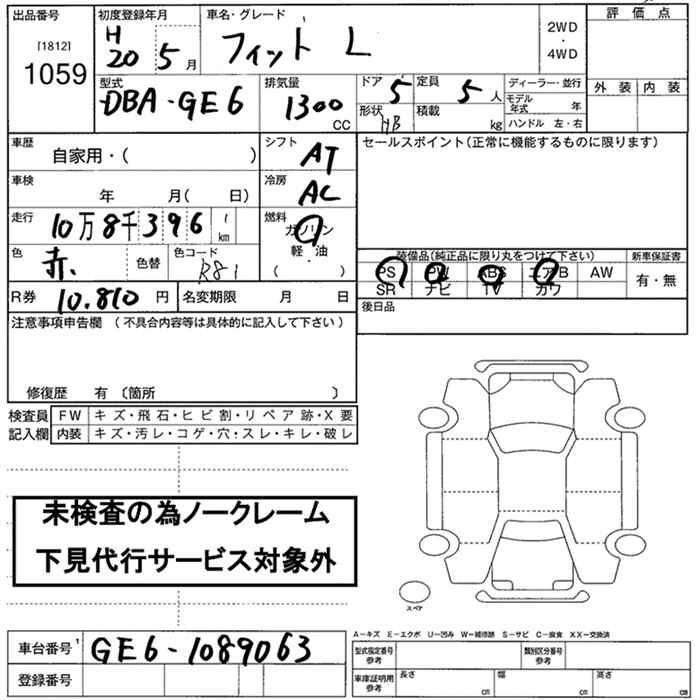 出品番号 初度登録年月 車名・グレード 評価点
[1812] 1059
H 20 5月 フィット L
2WD
・
4WD
外装 内装
型式 排気量 ドア 定員 ディーラー・並行
DBA-GE6 1300 CC 5 5人
形状 HB 積載 kg
モデル年式 年
ハンドル 左・右
車歴 シフト セールスポイント(正常に機能するものに限ります)
自家用・( ) AT
車検 冷房
年 月( 日) AC
走行 燃料
10万8千396 km ガソリン
軽・油
( )
色 色替 色コード
赤 R81
装備品(純正品に限り丸をつけて下さい) 新車保証書
PS PW ABS エアB AW 有・無
SR ナビ TV カワ
R券 10.810円 名変期限 月 日
後日品
注意事項申告欄 (不具合内容等は具体的に記入して下さい)
修復歴 有 〔箇所 〕
検査員 FW キズ・飛石・ヒビ割・リペア跡・X要
記入欄 内装 キズ・汚レ・コゲ・穴・スレ・キレ・破レ
未検査の為ノークレーム
下見代行サービス対象外
スペア
A-キズ E-エクボ U-凹み W-補修跡 S-サビ C-腐食 XX-交換済
車台番号 GE6-1089063
型式指定番号 参考 類別区分番号 参考
登録番号
車庫証明用 参考 長さ cm 幅 cm 高さ cm